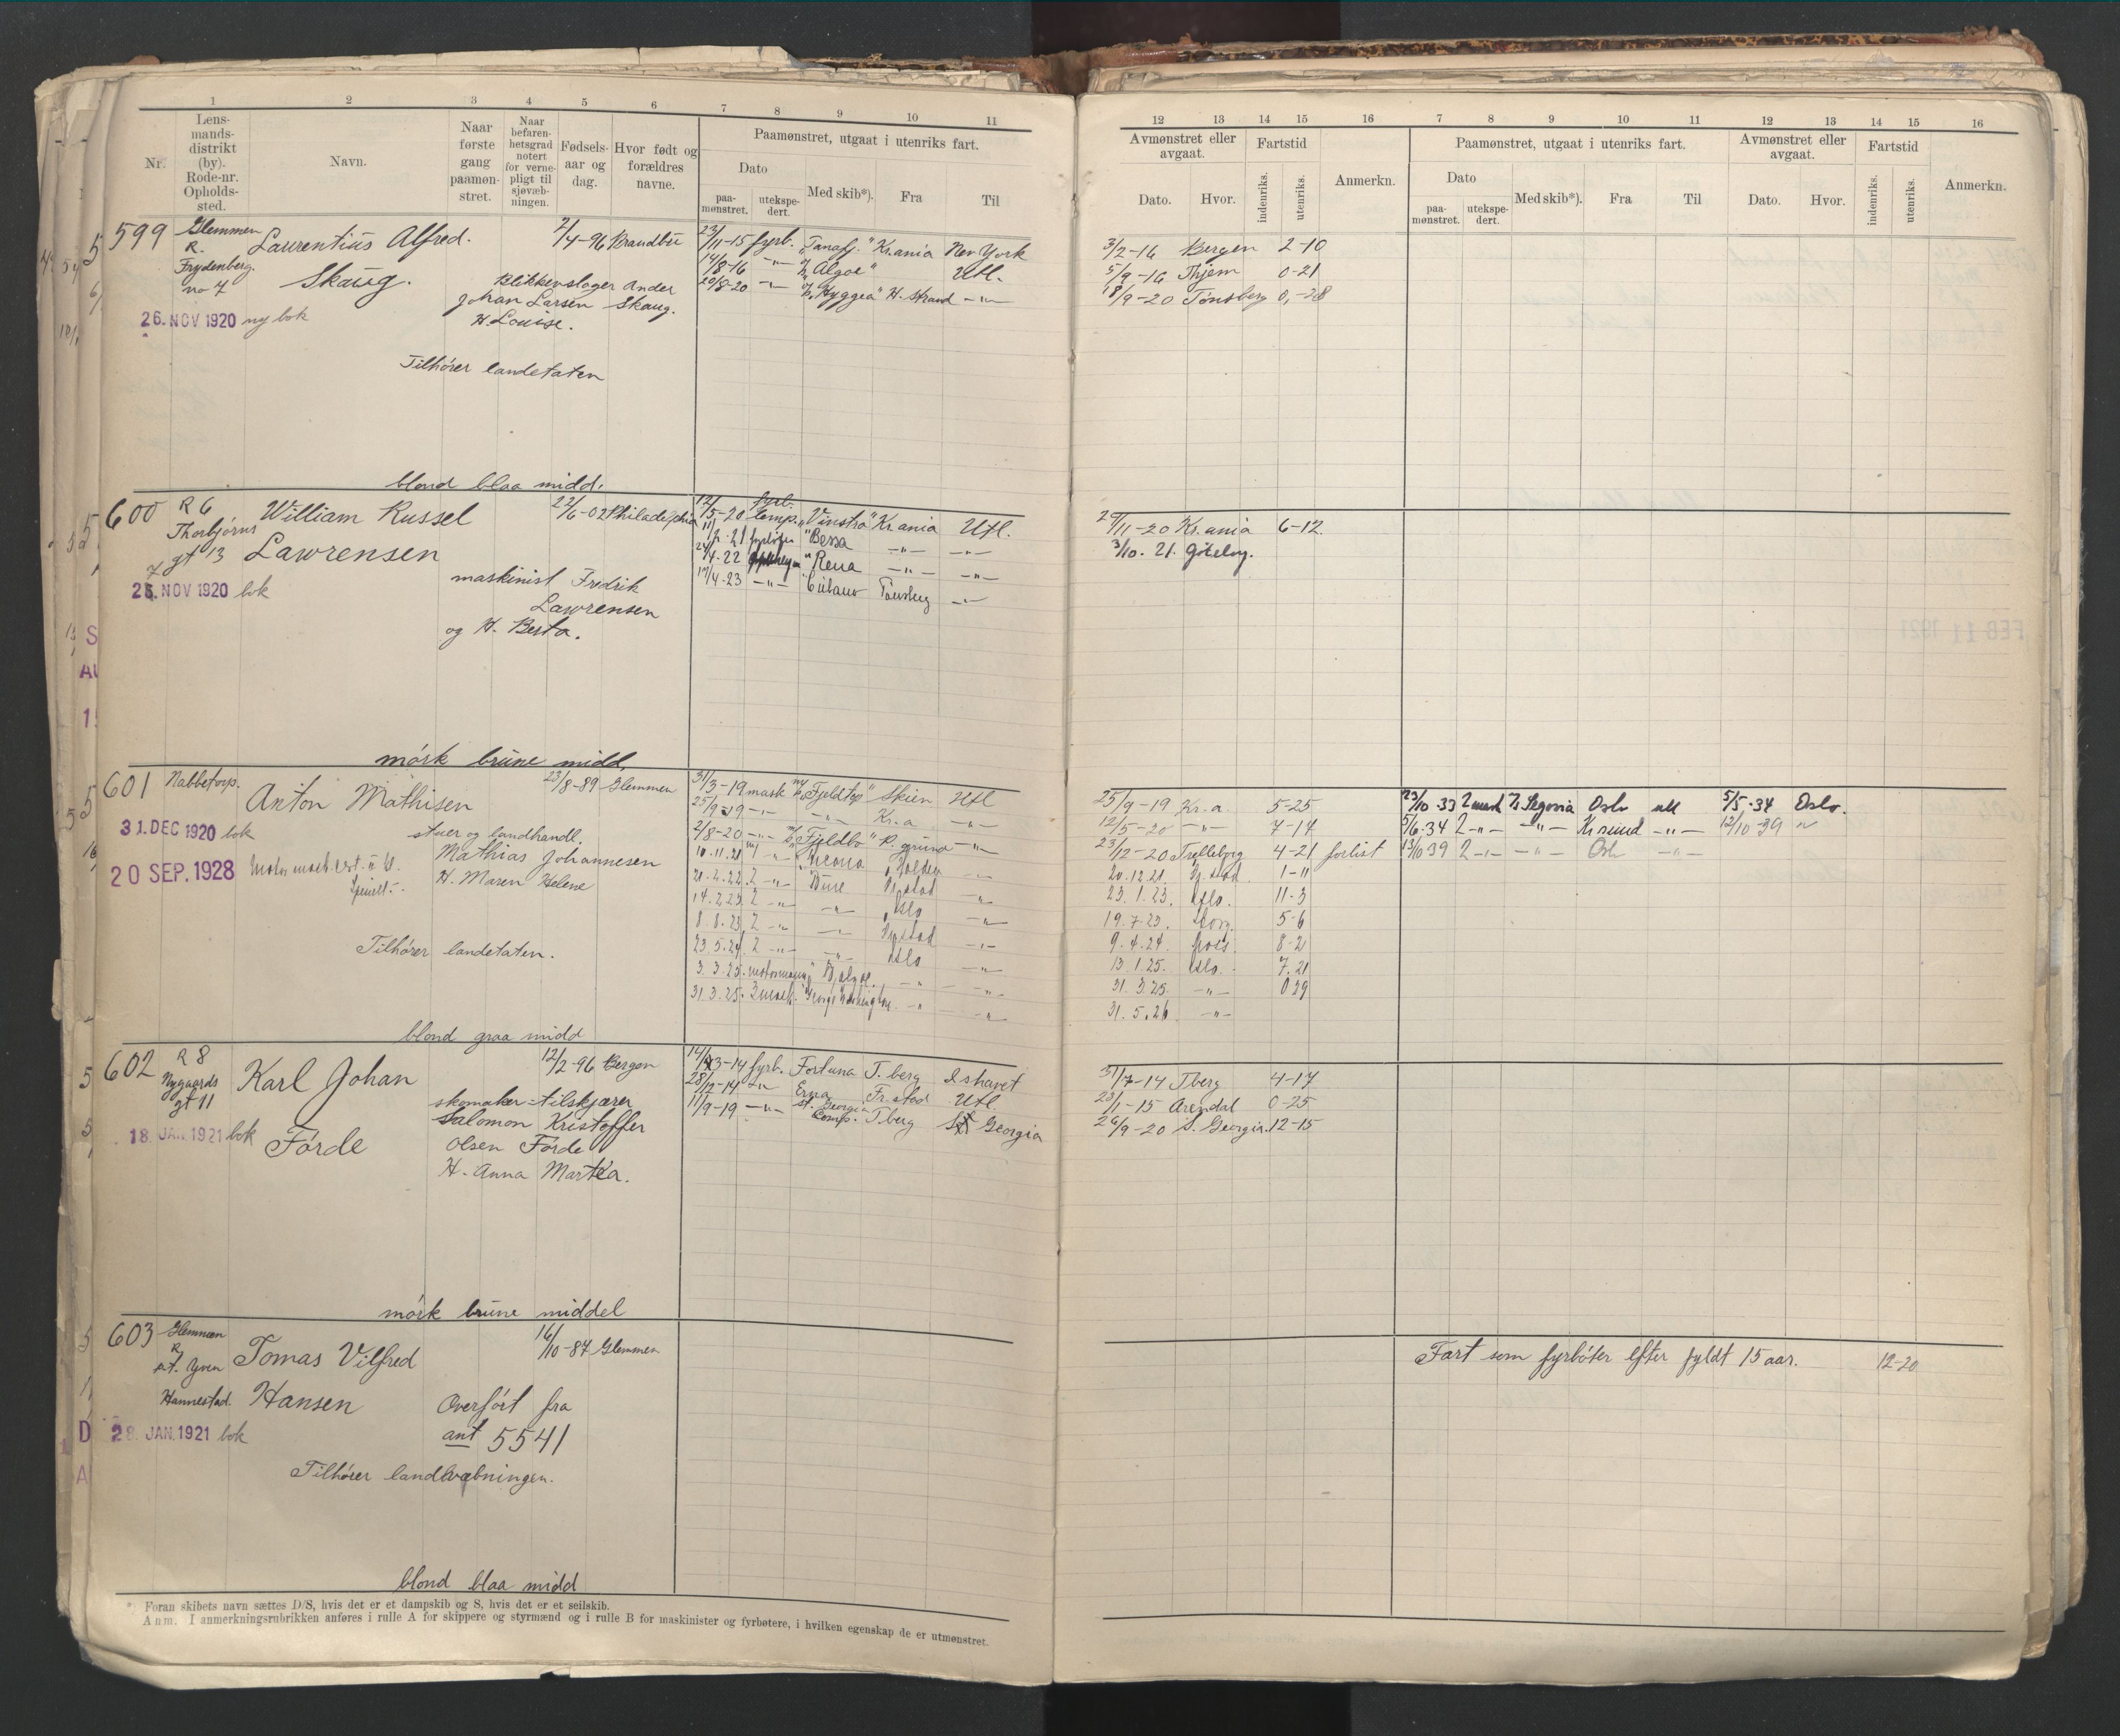 1 2 3 4 5 6 7 8 9 10 11
Nr.
Lens-
mands-
distrikt
(by).
Rode-nr.
Opholds-
sted.
Navn.
Naar
første
gang
paamøn-
stret.
Naar
befaren-
hetsgrad
notert
for verne-
pligt til
sjøvæb-
ningen.
Fødsels-
aar og
dag.
Hvor født og
forældres
navne.
Paamønstret, utgaat i utenriks fart.
Dato
paa-
mønstret.
utekspe-
dert.
Med skib*).
Fra
Til
12 13 14 15 16 7 8 9 10 11 12 13 14 15 16
Avmønstret eller
avgaat.
Dato.
Hvor.
Fartstid
indenriks.
utenriks.
Anmerkn.
Paamønstret, utgaat i utenriks fart.
Dato
paa-
mønstret.
utekspe-
dert.
Med skib*).
Fra
Til
Avmønstret eller
avgaat.
Dato.
Hvor.
Fartstid
indenriks.
utenriks.
Anmerkn.
599 Glemmen
R.
Frydenberg.
no 7
Laurentius Alfred.
Skaug.
2/4-96 Brandbu
Blikkenslager Ander
Johan Larsen Skaug.
H. Louise.
26. NOV 1920 ny bok
Tilhører landetaten
blond blaa midd.
23/11-15 fyrb. Kr.ania New York
14/8-16 -"- "Algol" Utl.
20/8-20 -"- "Hyggea" H. strand -"-
3/2-16 Bergen 2-10
5/9-16 Thjem 0-21
18/9-20 Tønsberg 0,-28
600 R 6
Thorbjørns
gt 13
William Russel
Lawrensen
22/6-02 Philadelphia
maskinist Fredrik
Lawrensen
og H. Berta.
26. NOV 1920 bok
mørk brune midd.
fyrb.
12/5-20 Lemp. "Vinstra" Kr ania Utl.
"Bessa -"- -"-
"Rena -"- -"-
17/4-23 -"- Cubano Tønsberg -"-
29/11-20 Kr.ania 6-12.
3/10. 21. Göteborg.
601 Nabbetorp.
Anton Mathisen
23/8-89 Glemmen
stuer og landhandl.
Mathias Johannesen
H. Maren Helene
31. DEC 1920 bok
20 SEP. 1928
Tilhører landetaten.
blond graa midd
31/3-19 mask "Fjeldtop" Skien Utl
25/9-19 -"- -"- Kr.a -"-
2/8-20 -"- "Fjeldbo" P. grund -"-
10.11.21
21.2.22 2 -"-
14.2.23 2 -"- -"- Oslo -"-
8.8.23 2 -"- -"-
23.5.24 2 -"- -"- Oslo -"-
3.3.25. -"- -"-
31.3.25. 2 mask. George Washington -"- -"-
25/9-19 Kr.a. 5-25
12/5-20 -"- 7-14
23/12-20 Trelleborg 4-21 forlist
20.12.21. 1-11
23.1.23. Oslo. 11-3
19.7.23. 5-6
9.4.24. Moss 8-2
13.1.25. Oslo. 7.21
31.3.25. -"- 0 29
31.5.26 -"-
23/10-33 2 mask Segovia Oslo utl 5/5-34 Oslo.
5/6-34 2 -"- -"- Kr sund -"- 12/10-39 "
13/10 39 2 -"- -"- Osl -"-
602 R 8
Nygaards
gt 11
Karl Johan
Førde
12/2-96 Bergen
skomaker-tilskjærer
Salomon Kristoffer
Olsen Førde
H. Anna Martea.
18. JAN. 1921 bok
mørk brune middel
fyrb. Fortuna T. berg Ishavet
28/12-14 -"- Erna Fr. stad Utl.
11/9-19 -"- St. Georgia
Comp. T berg St Georgia
31/7-14 Tberg 4-17
23/1-15 Arendal 0-25
26/9-20 S. Georgia. 12-15
603 Glemmen
R
st. Yven
Hannestad.
Tomas Vilfred
Hansen
16/10-87 Glemmen
Overført fra
ant 5541
28. JAN. 1921 bok
Tilhører landtvæbningen.
blond blaa midd
Fart som fyrbøter efter fyldt 15 aar. 12-20
*) Foran skibets navn sættes D/S, hvis det er et dampskib og S, hvis det er et seilskib.
Anm. I anmerkningsrubrikken anføres i rulle A for skippere og styrmænd og i rulle B for maskinister og fyrbøtere, i hvilken egenskap de er utmønstret.